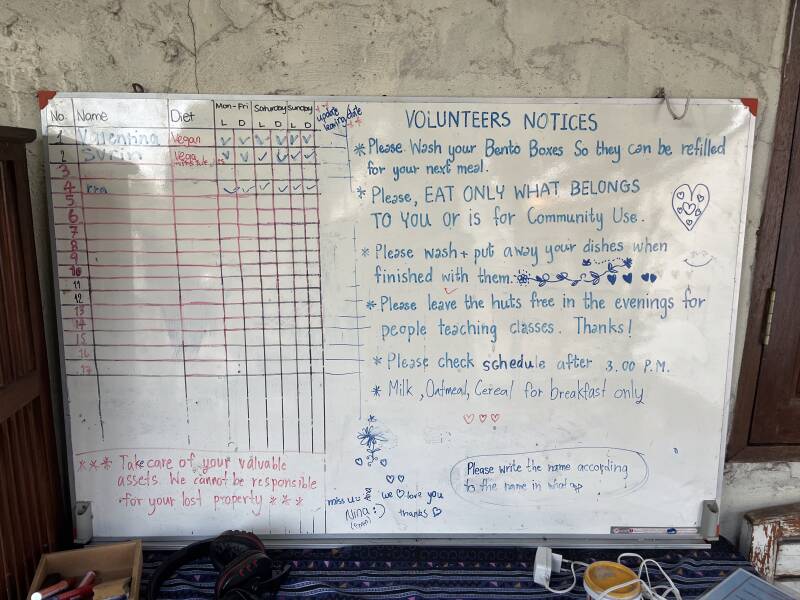 No. Name Diet Mon-Fri Saturday Sunday update leaving date
L D L D L D
1 Valentina Vegan
2
3
4
5
6
7
8
9
10
11
12
13
14
15
16
17
*** Take care of your valuable
assets. We cannot be responsible
for your lost property ***
VOLUNTEERS NOTICES
* Please Wash your Bento Boxes So they can be refilled
for your next meal.
* Please, EAT ONLY WHAT BELONGS
TO YOU Or is for Community Use.
* Please wash + put away your dishes when
finished with them.
* Please leave the huts free in the evenings for
people teaching classes. Thanks!
* Please check schedule after 3.00 P.M.
* Milk, Oatmeal, Cereal for breakfast only
Please write the name according
to the name in whatapp
miss u
Nina :)
we ♡ love you
thanks ♡